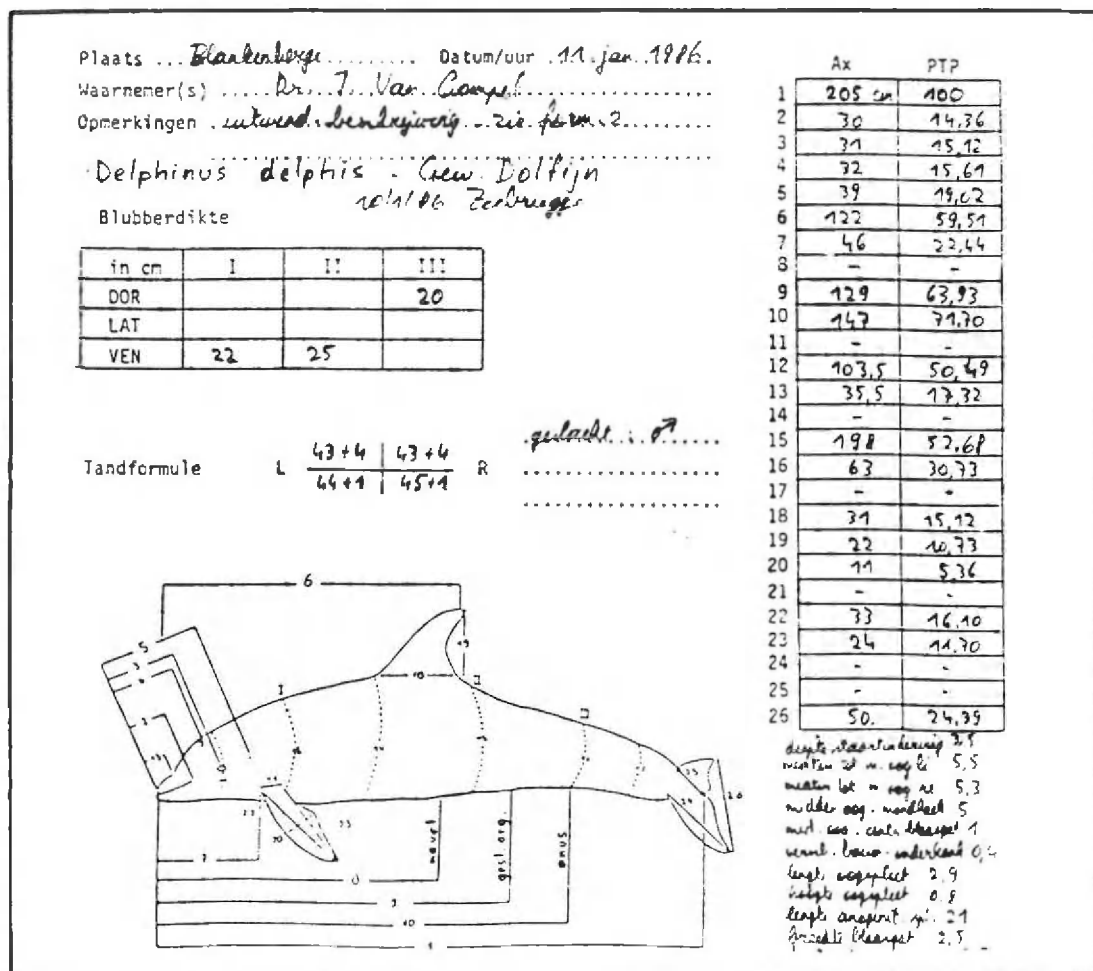 Plaats ... Blankenberge ......... Datum/uur .11.jan..1986.
Waarnemer(s) ..... Dr. J. Van Gompel
Opmerkingen . uitwend. beschrijving - zie form. 2
Delphinus delphis - Gew. Dolfijn
10/1/86 Zeebrugge
Blubberdikte
in cm I II III
DOR 20
LAT
VEN 22 25
geslacht : ♂
Tandformule L 43+4 | 43+4 R
44+1 | 45+1
Ax PTP
1 205 cm 100
2 30 14,36
3 31 15,12
4 32 15,61
5 39 19,02
6 122 59,51
7 46 22,44
8 - -
9 129 63,93
10 147 71,70
11 - -
12 103,5 50,49
13 35,5 17,32
14 - -
15 198 52,68
16 63 30,73
17 - -
18 31 15,12
19 22 10,73
20 11 5,36
21 - -
22 33 16,10
23 24 11,70
24 - -
25 - -
26 50. 24,39
diepte staartindeling 3,5
5,5
5,3
midden oog - mondhoek 5
1
0,4
lengte oogspleet 2,9
hoogte oogspleet 0,8
lengte 21
breedte blaasgat 2,5
6
5
3
4
2
13
I
10
19
II
III
navel
gesl.org.
anus
7
8
9
10
1